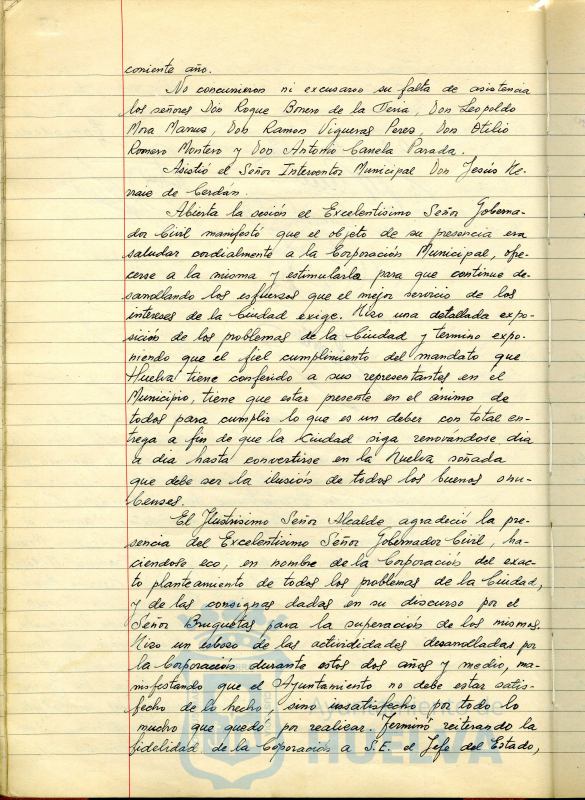 corriente año.
No concurrieron ni excusaron su falta de asistencia
los señores Don Roque Borrero de la Feria, Don Leopoldo
Mora Marrus, Don Ramon Vigueras Peres, Don Otilio
Romero Montero y Don Antonio Canela Parada.
Asistió el Señor Interventor Municipal Don Jesús He-
rraie de Cerdán.
Abierta la sesión el Excelentisimo Señor Goberna-
dor Civil manifestó que el objeto de su presencia era
saludar cordialmente a la Corporación Municipal, ofre-
cerse a la misma y estimularla para que continue de-
sarrollando los esfuerzos que el mejor servicio de los
intereses de la Ciudad exige. Hizo una detallada expo-
sición de los problemas de la Ciudad y termino expo-
niendo que el fiel cumplimiento del mandato que
Huelva tiene conferido a sus representantes en el
Municipio, tiene que estar presente en el ánimo de
todos para cumplir lo que es un deber con total en-
trega a fin de que la Ciudad siga renovándose dia
a dia hasta convertirse en la Huelva soñada
que debe ser la ilusión de todos los buenos onu-
benses.
El Ilustrisimo Señor Alcalde agradeció la pre-
sencia del Excelentisimo Señor Gobernador Civil, ha-
ciendose eco, en nombre de la Corporación del exac-
to planteamiento de todos los problemas de la Ciudad,
y de las consignas dadas en su discurso por el
Señor Bruquetas para la superación de los mismos.
Hizo un esboso de las actividades desarrolladas por
la Corporación durante estos dos años y medio, ma-
nifestando que el Ayuntamiento no debe estar satis-
fecho de lo hecho, sino insatisfecho por todo lo
mucho que quedó por realizar. Terminó reiterando la
fidelidad de la Coporación a S.E. el Jefe del Estado,
HUELVA